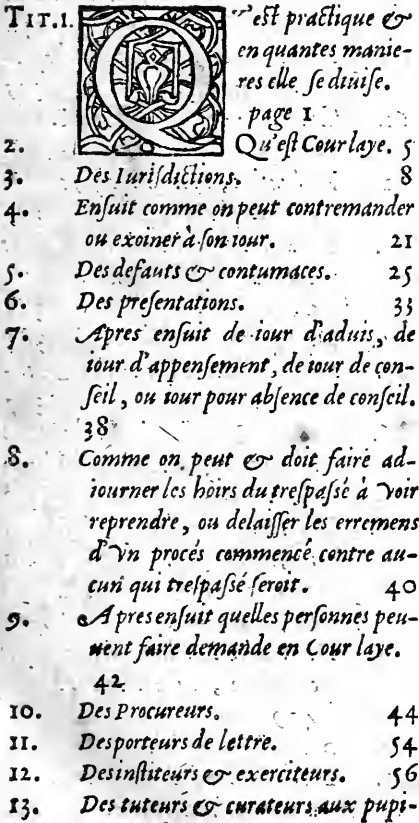 TIT.1. Q u'est practique &
en quantes manie-
res elle se diuise.
page 1
2. Qu'est Cour laye. 5
3. Des Iurisdictions. 8
4. Ensuit comme on peut contremander
ou exoiner à son iour. 21
5. Des defauts & contumaces. 25
6. Des presentations. 33
7. Apres ensuit de iour d'aduis, de
iour d'appensement, de iour de con-
seil, ou iour pour absence de conseil.
38
8. Comme on peut & doit faire ad-
iourner les hoirs du trespassé à voir
reprendre, ou delaisser les erremens
d'vn procés commencé contre au-
cun qui trespassé seroit. 40
9. Apres ensuit quelles personnes peu-
uent faire demande en Cour laye.
42
10. Des Procureurs. 44
11. Des porteurs de lettre. 54
12. Des institeurs & exerciteurs. 56
13. Des tuteurs & curateurs aux pupi-